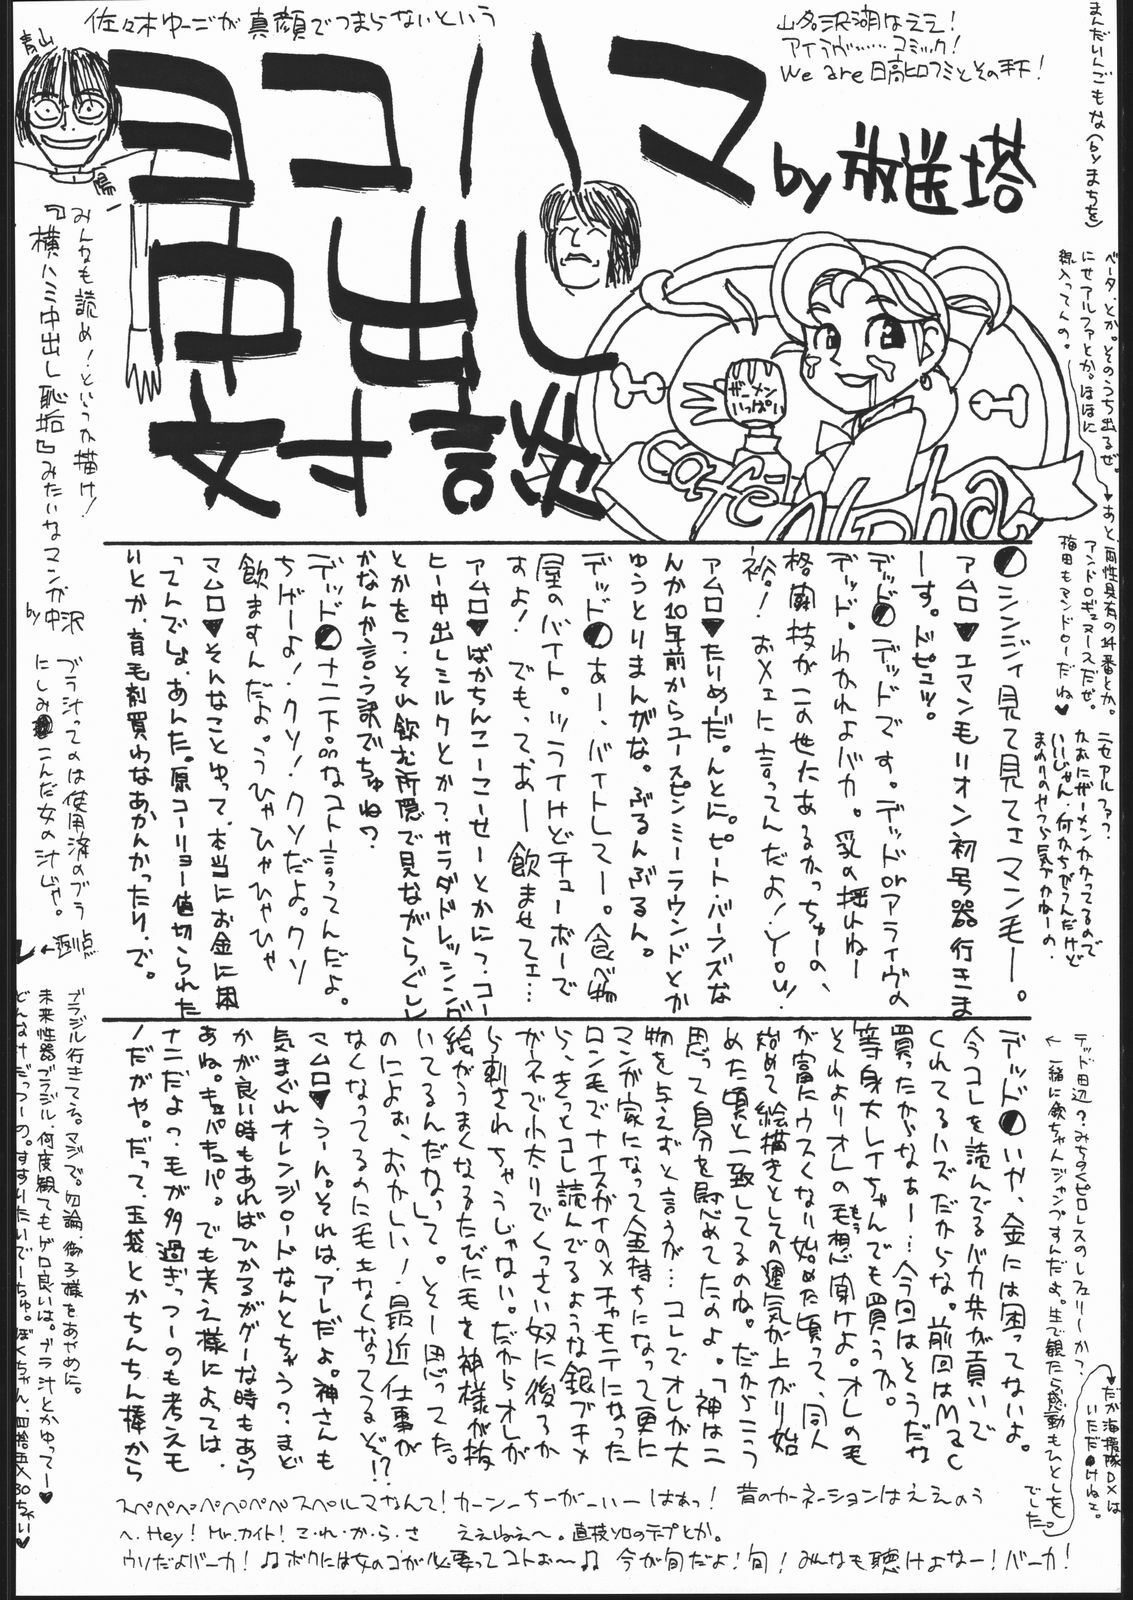 佐々木ゆーごが真顔でつまらないという
山名沢湖はええ!
アイラヴ……コミック!
We are 日高ヒロフミとその手下!
ヨコハマ
中出し
対談
by 放送塔
青山
陽一
ザーメン
いっぱい
cafe alpha
みんなも読め!というか描け!
『横ハミ中出し恥垢』みたいなマンガ by 中沢
ブラ汁ってのは使用済のブラ
にしみこんだ女の汁じゃ。
ブラジル行きてえ。マジで。勿論、御子様をあやめに。
未来性器ブラジル、何度観てもゲロ良いは。ブラ汁とかゆってー♥
まんだいんごもな(byまちを)
ベータ、とか。そのうち出るぜ。
にせアルファとか。ほほに
線入ってんの。
あと両性具有の14番とか。
アンドロギュヌースだぜ。
梅田もアンドローだね♥
ニセアルファ?
かおにザーメンかかってるので
いいじゃん。何かちがうんだけど
シンジィ見て見てェマン毛ー。
アムロ▼エマン毛リオン初号器行きま
ーす。ドピュッ。
デッド デッドです。デッドorアライヴの
デッド。わかれよバカ。乳の揺れねー
格闘技がこの世にあるかっちゅーの、
裕!おメェに言ってんだよ!You!
アムロ▼たいめーだ。んとに。ピート・バーンズな
んか10年前からユースピンミーラウンドとか
ゆうとりまんがな。ぶるんぶるん。
デッド あー、バイトしてー。食べ物
屋のバイト。ツライけどチューボーで
すよ!でもっておー飲ませてェ…
アムロ▼ばかちんこーこーせーとかにっ、コー
ヒー中出しミルクとかっ?サラダドレッシング
とかをつ、それ飲む所隠で見ながらぐしし
かなんか言う訳でちゅね?
デッド ナニ下品なコト言ってんだよ。
ちげーよ!クソ!クソだよ。クソ
飲ますんだよ。うひゃひゃひゃひゃ
マムロ▼そんなことゆって、本当にお金に困
ってんでしょ、あんた。原コーリョー値切られた
いとか、育毛剤買わなあかんかったり、で。
デッド いや、金には困ってないよ。
今コレを読んでるバカ共が貢いで
くれてるハズだからな。前回はMac
買ったからなぁー…今回はそうだな
等身大レイちゃんでも買うか。
それよりオレの毛想聞けよ。オレの毛
が富にウスくなり始めた頃って、同人
始めて絵描きとしての運気が上がり始
めた頃と一致してるのね。だからこう
思って自分を慰めてたのよ。「神は二
物を与えずと言うが…コレでオレが大
マンガ家になって金持ちになって更に
ロン毛でナイスガイのメチャモテになった
ら、きっとコレ読んでるような銀ブチメ
ガネで小太りでくっさい奴に後ろか
ら刺されちゃうじゃない。だからオレが
絵がうまくなるたびに毛を神様が抜
いてるんだなぁ」って。そー思ってた。
のによぉ、おかしい!最近仕事が
なくなってるのに毛もなくなってるぞ!?
マムロ▼うーん。それは、アレだよ。神さんも
気まぐれオレンジロードなんとちゃう?まど
かが良い時もあればひかるがグーな時もあら
あね。キュパキュパ。でも考え様によっては、
ナニだよっ、毛が多過ぎっつーのも考えモ
ノだがや。だって、玉袋とかちんちん棒から
デッド田辺?みちのくプロレスのレフェリーか?
一緒に飲ちゃんジャンプすんだよ。生で観たら感動もひとしおを
でした。
だが海援隊DXは
いただけねェ。
スペペペペペペペスペルマなんて!カーンーちーがーいーはぁっ!昔のカーネーションはええのう
へ、Hey!Mr.カイト!こ・れ・か・ら・さ ええねえ〜。直枝ソロのテープとか。
ウソだよバーカ!♫ボクには女のコがル必要ってコトぉ〜♫ 今が旬だよ!旬!みんなも聴けよなー!バーカ!